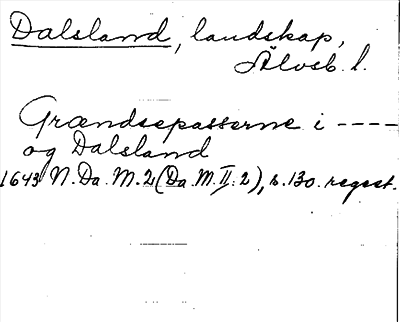 Dalsland, landskap,
Älvsb. l.
Grændsepasserne i ----
og Dalsland
1643 N. Da. M. 2 (Da. M. II: 2), s. 130. regest.